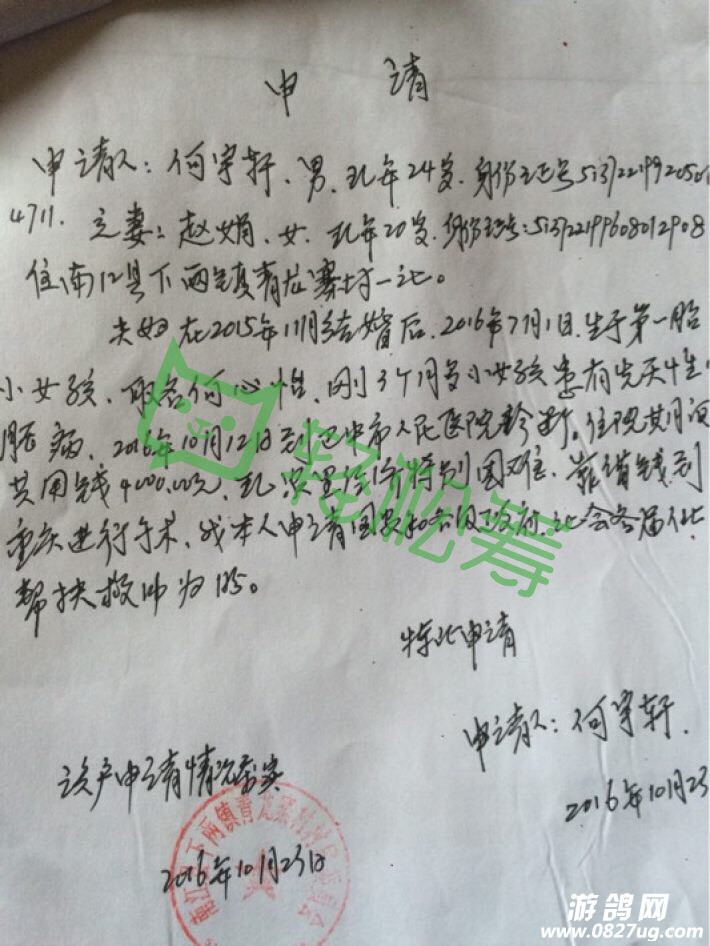 申请
申请人：何宇轩、男、现年24岁、身份证号5137221992050
4711. 之妻：赵娟、女、现年20岁、身份证号：513722199608012908
住南江县下两镇青龙寨村一社。
夫妇在2015年11月结婚后、2016年7月1日生于第一胎
小女孩、取名何心怡、刚3个月多小女孩患有先天性
胆病、2016年10月12日到巴中市人民医院诊断、住院其月间
共用钱4000.00元、现家里经济特别困难、靠借钱到
重庆进行手术、我本人申请国家和各级政府、社会各届人士
帮扶救助为盼。
特此申请
申请人：何宇轩.
2016年10月23
该户申请情况属实
2016年10月23日
南江县下两镇青龙寨村村民委员会
轻松筹
游鸽网
www.0827ug.com